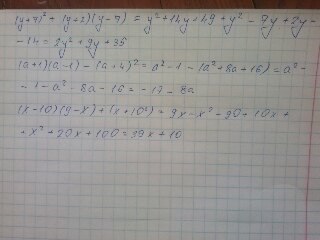 (y+7)² + (y+2)(y-7) = y² + 14y + 49 + y² - 7y + 2y -
- 14 = 2y² + 9y + 35
(a+1)(a-1) - (a+4)² = a² - 1 - (a² + 8a + 16) = a² -
- 1 - a² - 8a - 16 = -17 - 8a
(x-10)(9-x) + (x+10)² = 9x - x² - 90 + 10x +
+ x² + 20x + 100 = 39x + 10